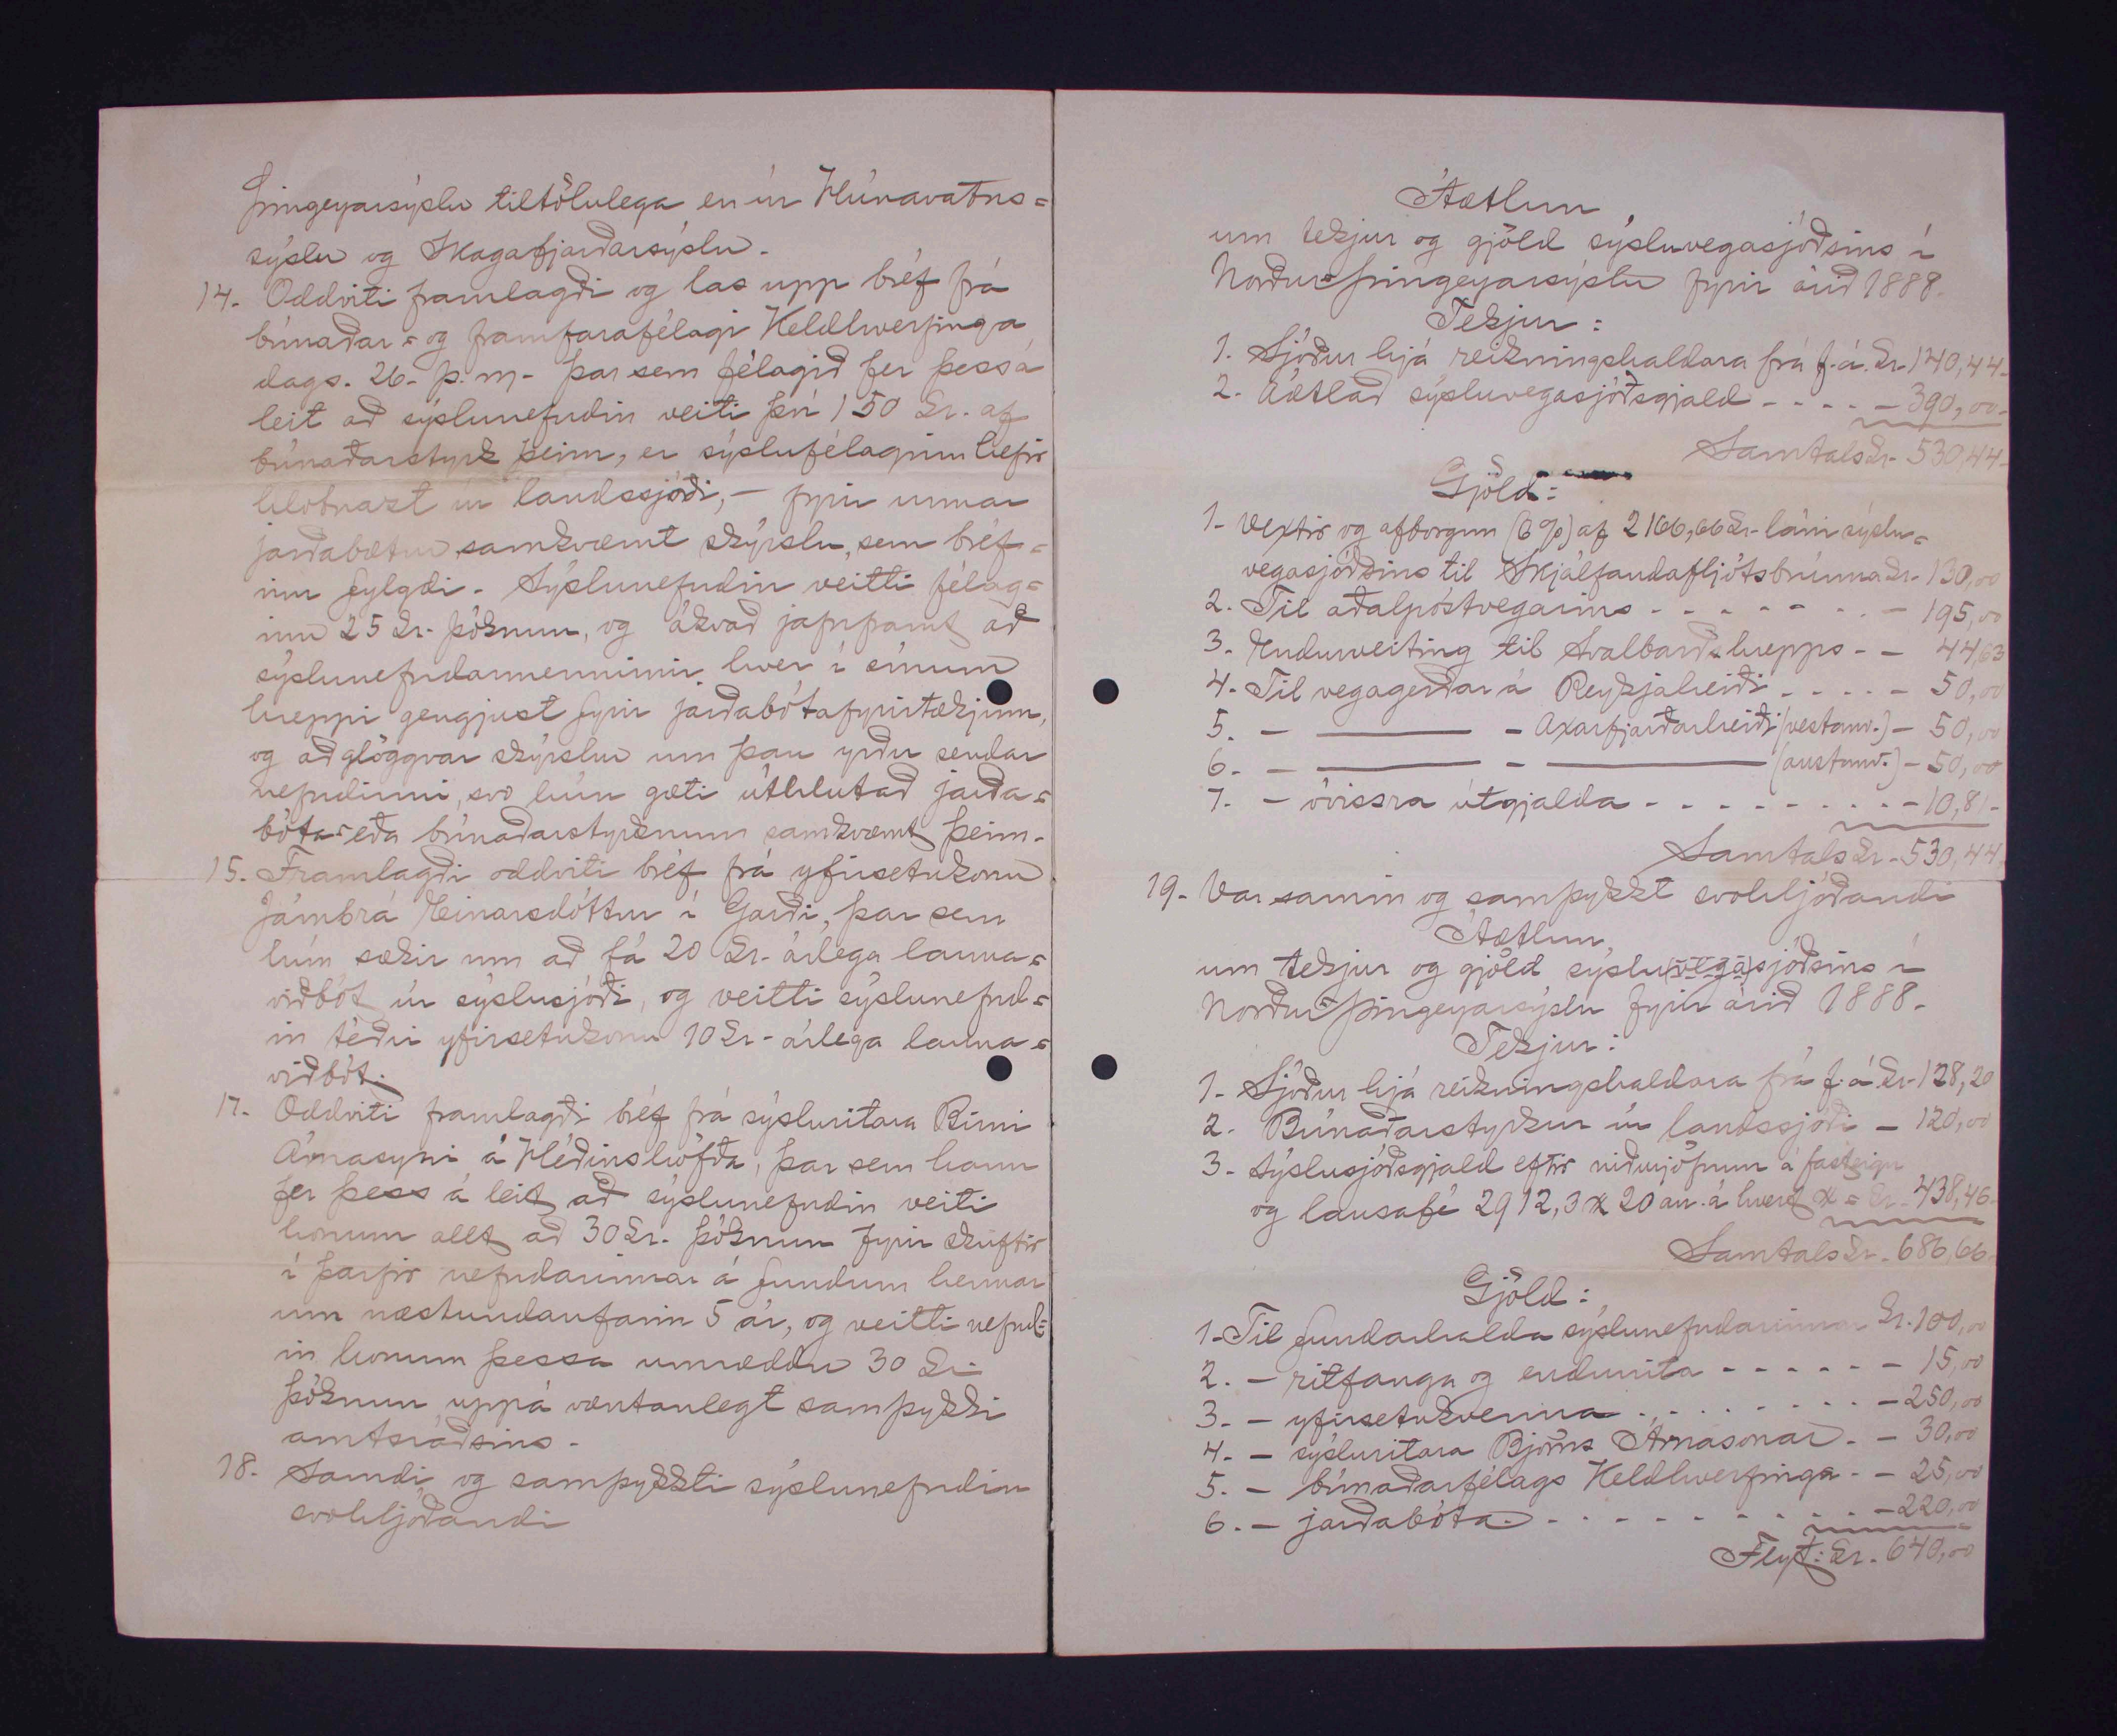 Þingeyarsýslu tiltölulega en úr Húnavatns=
sýslu og Skagafjarðarsýslu.
14. Oddviti framlagði og las upp bréf frá
búnaðar= og framfarafélagi Keldhverfinga
dags. 26. þ. m. þar sem félagið fer þess á
leit að sýslunefndin veiti því 150 Kr. af
búnaðarstyrk þeim, er sýslufélaginu hefir
hlotnazt úr landssjóði, – fyrir unnar
jarðabætur samkvæmt skýrslu, sem bréf=
inu fylgdi. Sýslunefndin veitti félag=
inu 25 Kr. þóknun, og ákvað jafnframt að
sýslunefndarmennirnir hver í sínum
hreppi gengjust fyrir jarðabótafyrirtækjum,
og að glöggvar skýrslur um þau yrðu sendar
nefndinni, svo hún gæti úthlutað jarða=
bóta= eða búnaðarstyrknum samkvæmt þeim.
15. Framlagði oddviti bréf frá yfirsetukonu
Jámbrá Einarsdóttur í Garði, þar sem
hún sækir um að fá 20 Kr. árlega launa=
viðbót úr sýslusjóði, og veitti sýslunefnd=
in téðri yfirsetukonu 10 Kr. árlega launa=
viðbót.
17. Oddviti framlagði bréf frá sýsluritara Birni
Árnasyni á Héðinshöfða, þar sem hann
fer þess á leit að sýslunefndin veiti
honum allt að 30 Kr. þóknun fyrir skriftir
í þarfir nefndarinnar á fundum hennar
um næstundanfarin 5 ár, og veitti nefnd=
in honum þessa umræddu 30 Kr.
þóknun uppá væntanlegt samþykki
amtsráðsins.
18. Samdi og samþykkti sýslunefndin
svohljóðandi
Áætlun
um tekjur og gjöld sýsluvegasjóðsins í
Norður=Þingeyarsýslu fyrir árið 1888.
Tekjur:
1. Sjóður hjá reikningshaldara frá f. á. Kr. 140,44.
2. Áætlað sýsluvegasjóðsgjald - - - - - 390,00.
Samtals Kr. 530,44.
Gjöld:
1. Vextir og afborgun (6%) af 2166,66 Kr. láni sýslu=
vegasjóðsins til Skjálfandafljótsbrúnna Kr. 130,00
2. Til aðalpóstvegarins - - - - - - - - 195,00
3. Endurveiting til Svalbarðshrepps - - 44,63
4. Til vegagerðar á Reykjaheiði - - - - - 50,00
5. – ——— – Axarfjarðarheiði (vestanv.) – 50,00
6. – ——— – ——— (austanv.) – 50,00
7. – óvissra útgjalda - - - - - - - - - 10,81.
Samtals Kr. 530,44.
19. Var samin og samþykkt svohljóðandi
Áætlun
um tekjur og gjöld sýslu(vega)sjóðsins í
Norður=Þingeyarsýslu fyrir árið 1888.
Tekjur:
1. Sjóður hjá reikningshaldara frá f. á Kr. 128,20
2. Búnaðarstyrkur úr landssjóði – 120,00
3. Sýslusjóðsgjald eftir niðurjöfnun á fasteign
og lausafé 2912,3 x 20 au. á hvert x = Kr. 438,46.
Samtals Kr. 686,66.
Gjöld:
1. Til fundarhalda sýslunefndarinnar Kr. 100,00
2. – ritfanga og endurrita - - - - - - 15,00
3. – yfirsetukvenna - - - - - - - - - 250,00
4. – sýsluritara Björns Árnasonar - - 30,00
5. – búnaðarfélags Keldhverfinga - - 25,00
6. – jarðabóta - - - - - - - - - - 220,00
Flyt: Kr. 640,00